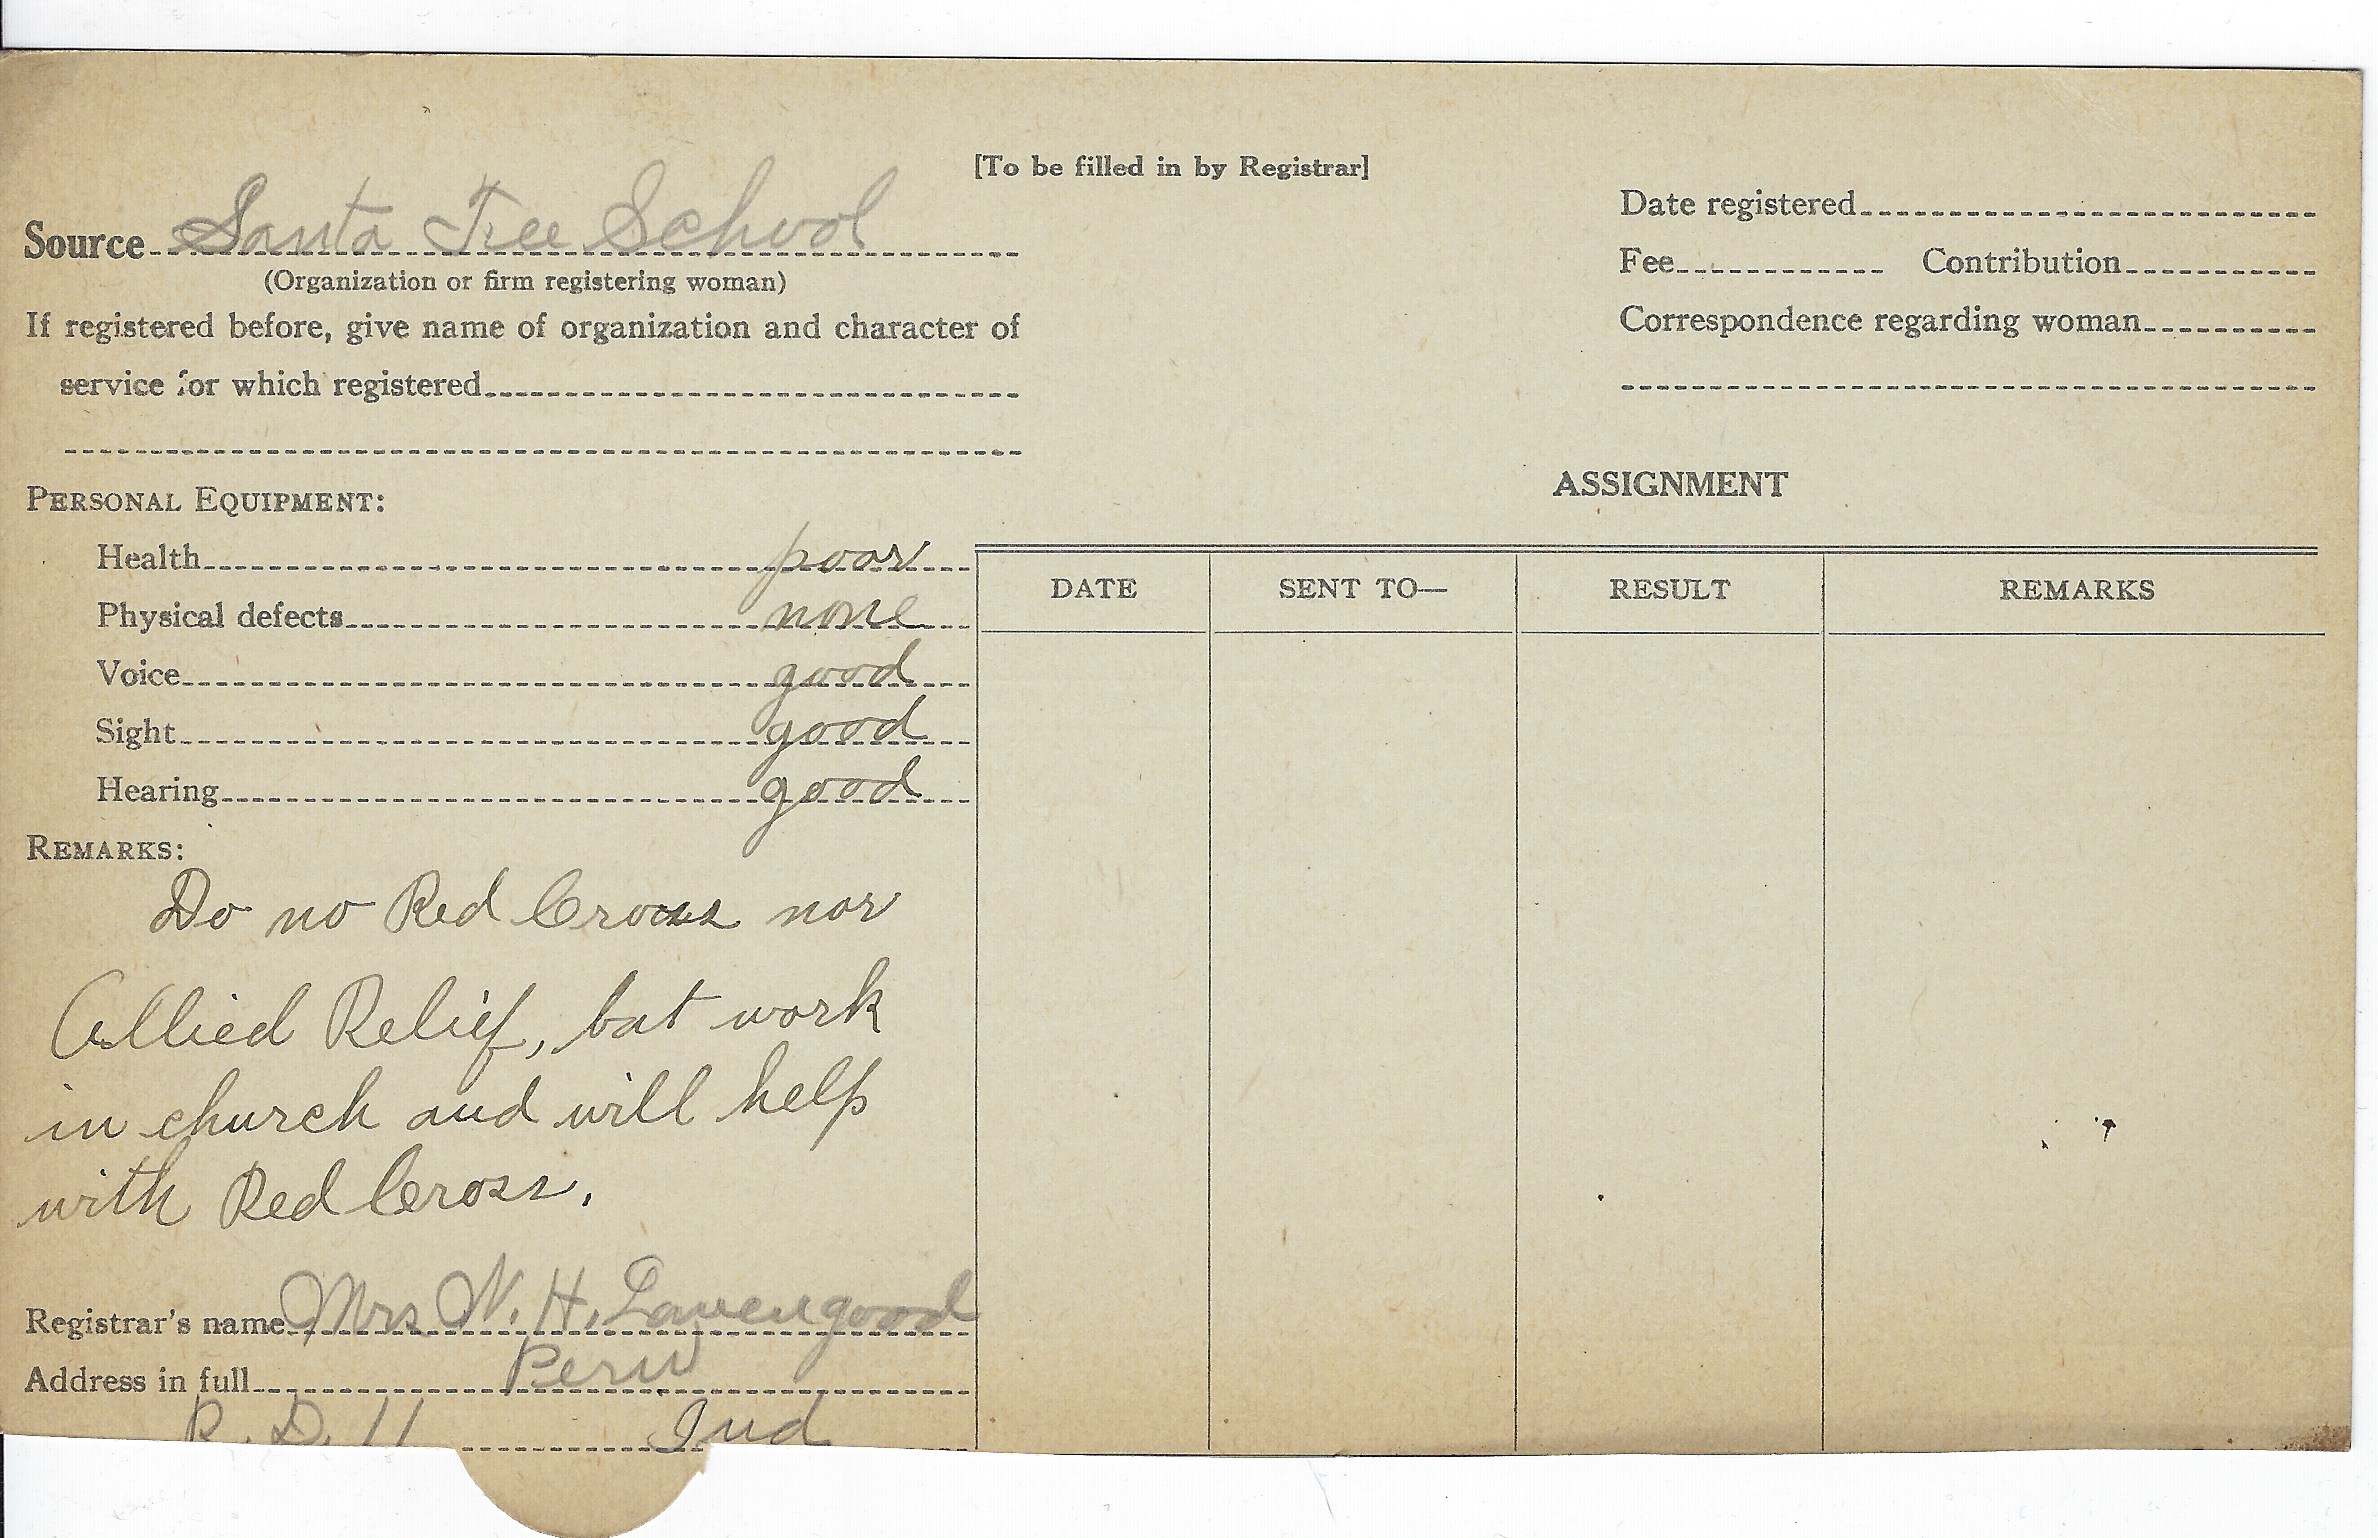 [To be filled in by Registrar]
Source Santa Fee School
(Organization or firm registering woman)
If registered before, give name of organization and character of
service for which registered
Date registered
Fee Contribution
Correspondence regarding woman
PERSONAL EQUIPMENT:
Health poor
Physical defects none
Voice good
Sight good
Hearing good
REMARKS:
Do no Red Cross nor
Allied Relief, but work
in church and will help
with Red Cross.
Registrar's name Mrs N. H. Lavengood
Address in full Peru
R. D. 11 Ind
ASSIGNMENT
DATE SENT TO— RESULT REMARKS